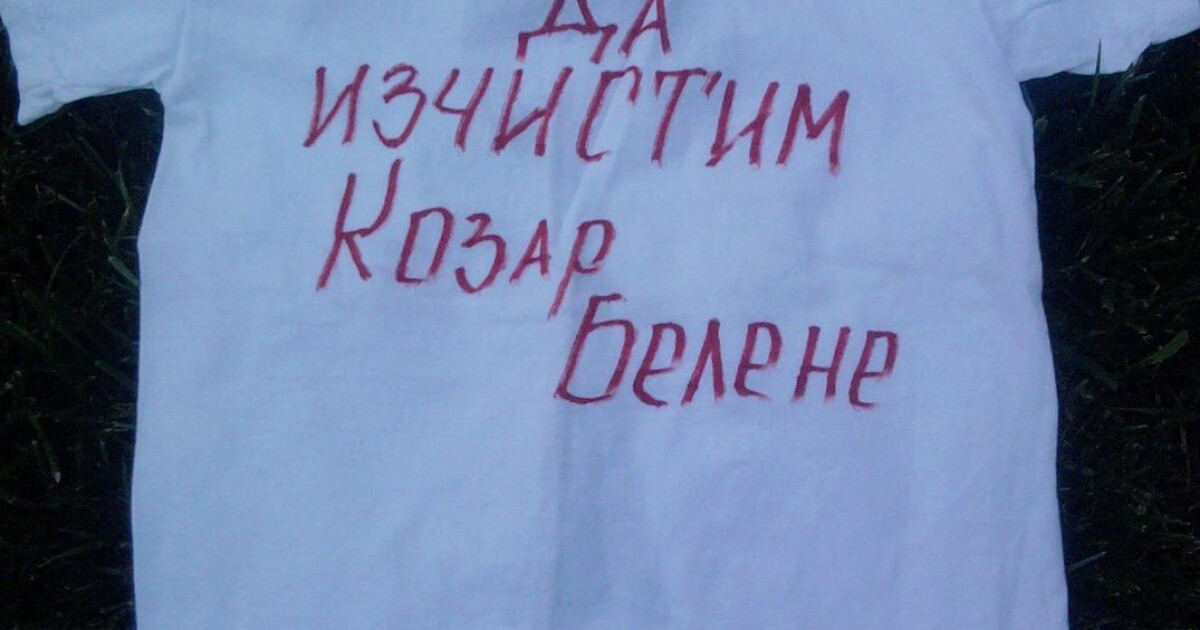 Да
изчистим
Козар
Белене